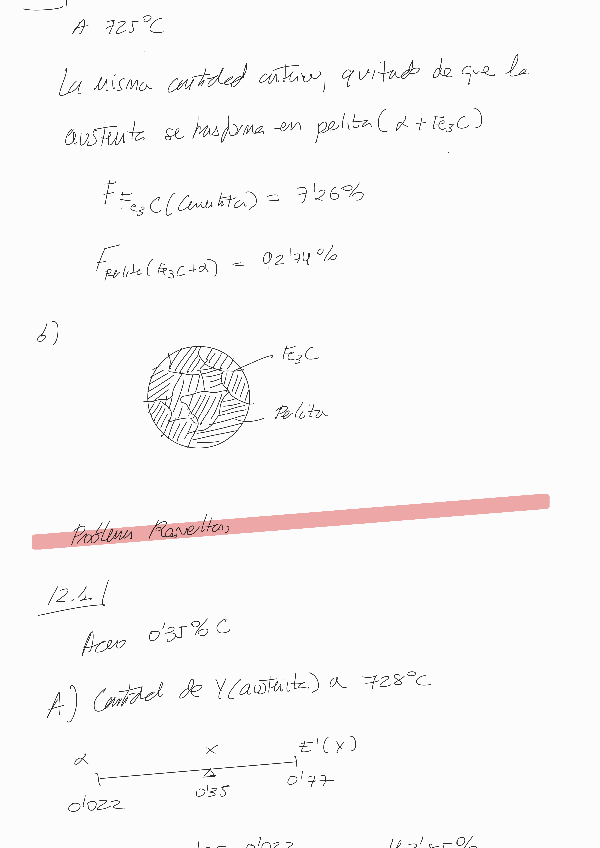 A 725°C
La misma cantidad anterior, quitado de que la
austenita se trasforma en perlita (α + Fe₃C)
F Fe₃C (Cementita) = 7'26%
F Perlita (Fe₃C+α) = 92'74%
b)
Fe₃C
Perlita
Problemas Resueltos
12.4.1
Acero 0'35% C
A.) Cantidad de γ (austenita) a 728°C
α x E'(γ)
0'022 0'35 0'77